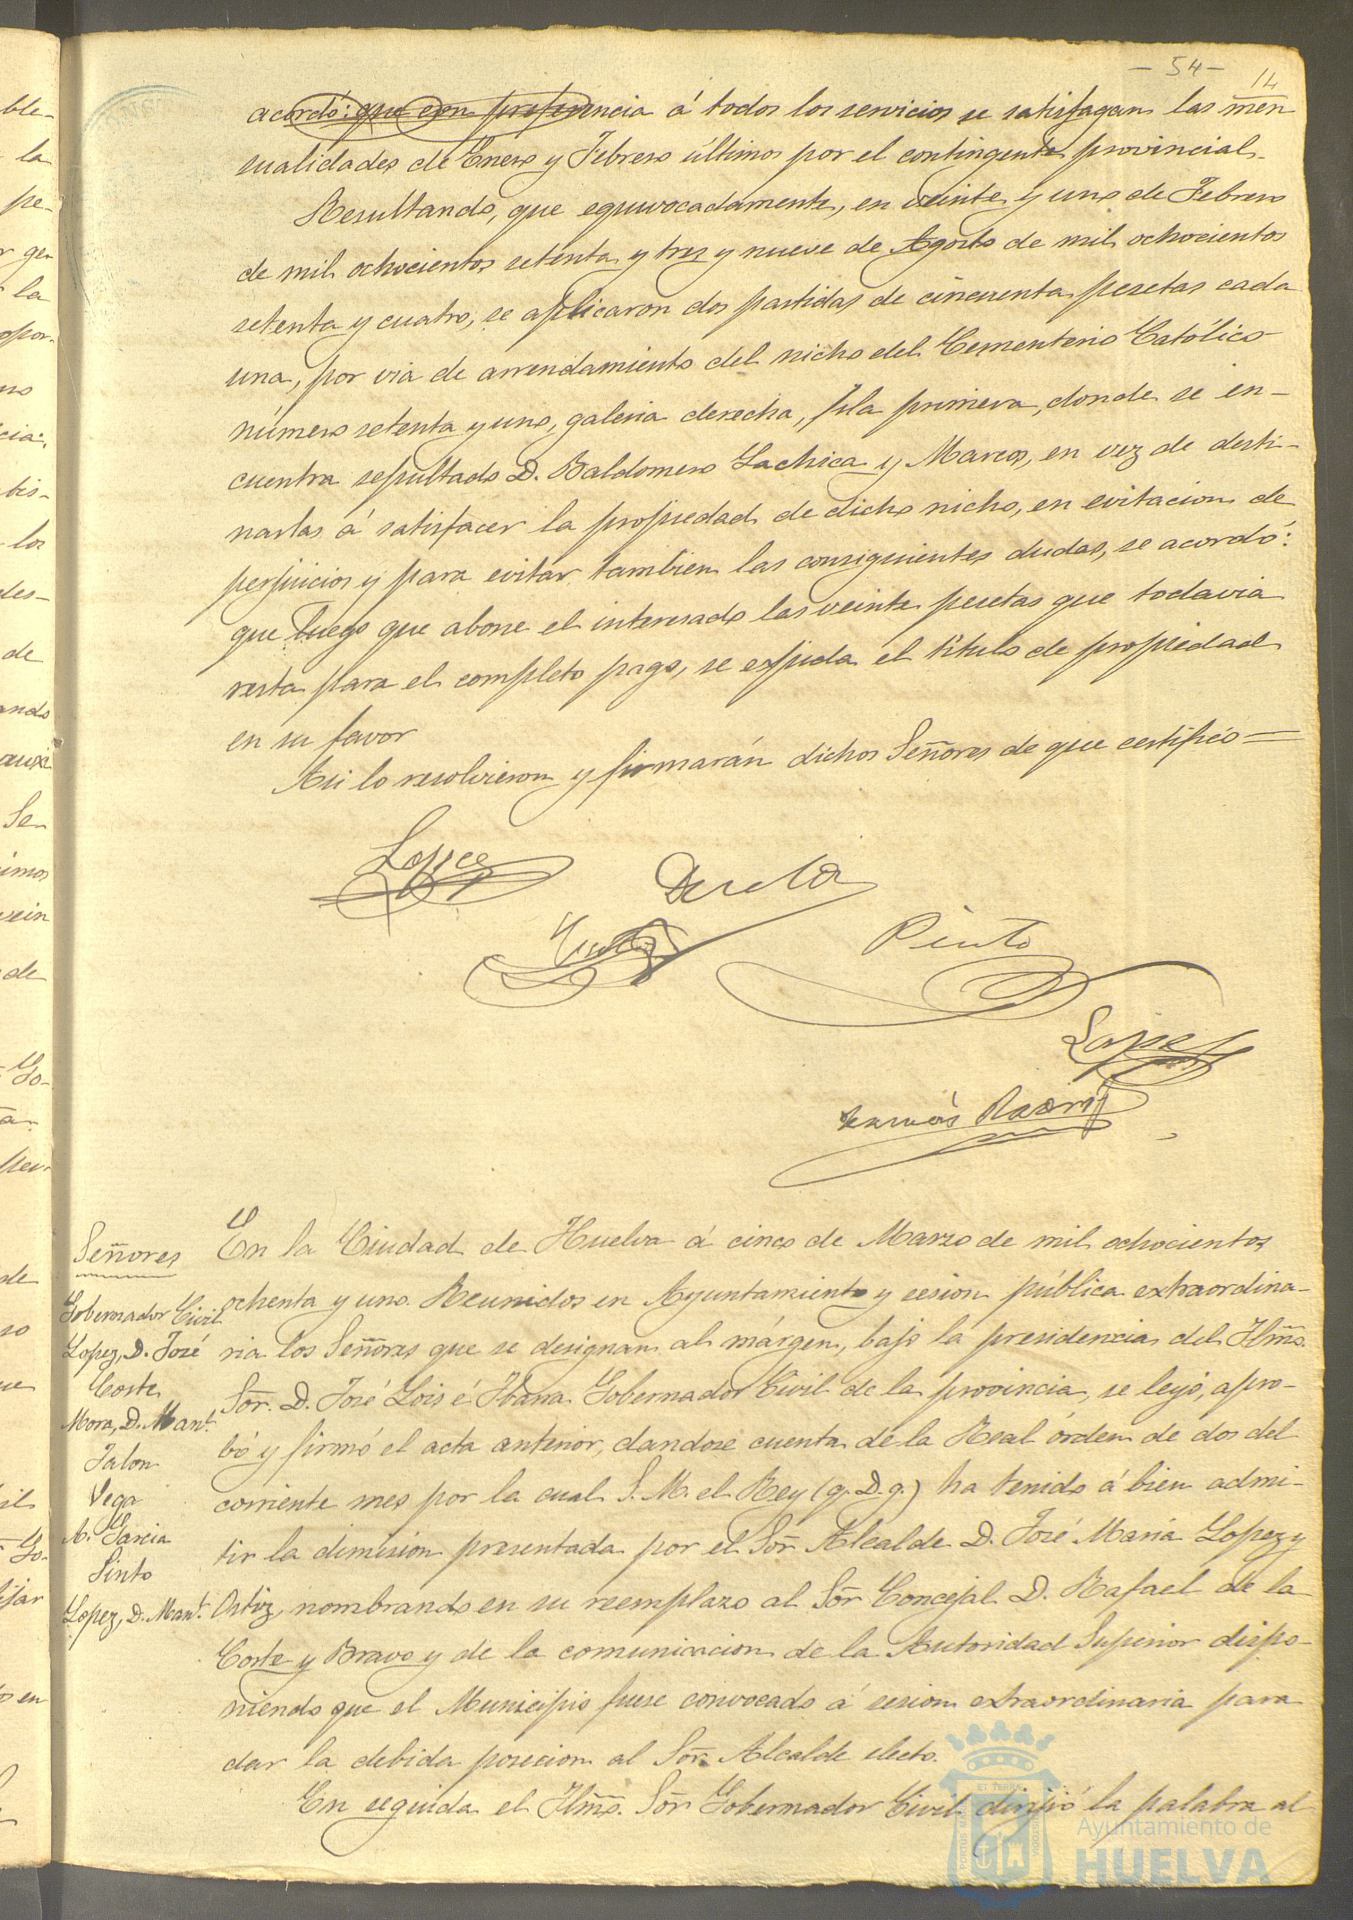 - 54 -
14
acordó: que con preferencia á todos los servicios se satisfagan las men
sualidades de Enero y Febrero últimos por el contingente provincial.
Resultando, que equivocadamente, en veinte y uno de Febrero
de mil ochocientos setenta y tres y nueve de Agosto de mil ochocientos
setenta y cuatro, se aplicaron dos partidas de cincuenta pesetas cada
una, por via de arrendamiento del nicho del Cementerio Católico
número setenta y uno, galeria derecha, fila primera, donde se en-
cuentra sepultado D. Baldomero Lachica y Marcos, en vez de desti-
narlas á satisfacer la propiedad de dicho nicho, en evitacion de
perjuicios y para evitar tambien las consiguientes dudas, se acordó:
que luego que abone el interesado las veinte pesetas que todavia
resta para el completo pago, se espida el título de propiedad
en su favor
Asi lo resolvieron y firmarán dichos Señores de que certifico=
Lopez
Pinto
Lopez
Señores
Gobernador Civil
Lopez, D. José
Corte
Mora, D. Manl.
Talon
Vega
A. Garcia
Pinto
Lopez, D. Manl.
En la Ciudad de Huelva á cinco de Marzo de mil ochocientos
ochenta y uno. Reunidos en Ayuntamiento y sesion pública extraordina-
ria los Señores que se designan al márgen, bajo la presidencia del Iltmo.
Sor. D. José Lois é Ibarra Gobernador Civil de la provincia, se leyó, apro-
bó y firmó el acta anterior, dandose cuenta de la Real órden de dos del
corriente mes por la cual S. M. el Rey (q. D. g.) ha tenido á bien admi-
tir la dimisión presentada por el Sor Alcalde D. José María Lopez y
Ortiz, nombrando en su reemplazo al Sor Concejal D. Rafael de la
Corte y Bravo y de la comunicacion de la Autoridad Superior dispo-
niendo que el Municipio fuese convocado á sesion extraordinaria para
dar la debida posecion al Sor. Alcalde electo.
En seguida el Iltmo. Sor Gobernador Civil dirijió la palabra al
Ayuntamiento de
HUELVA